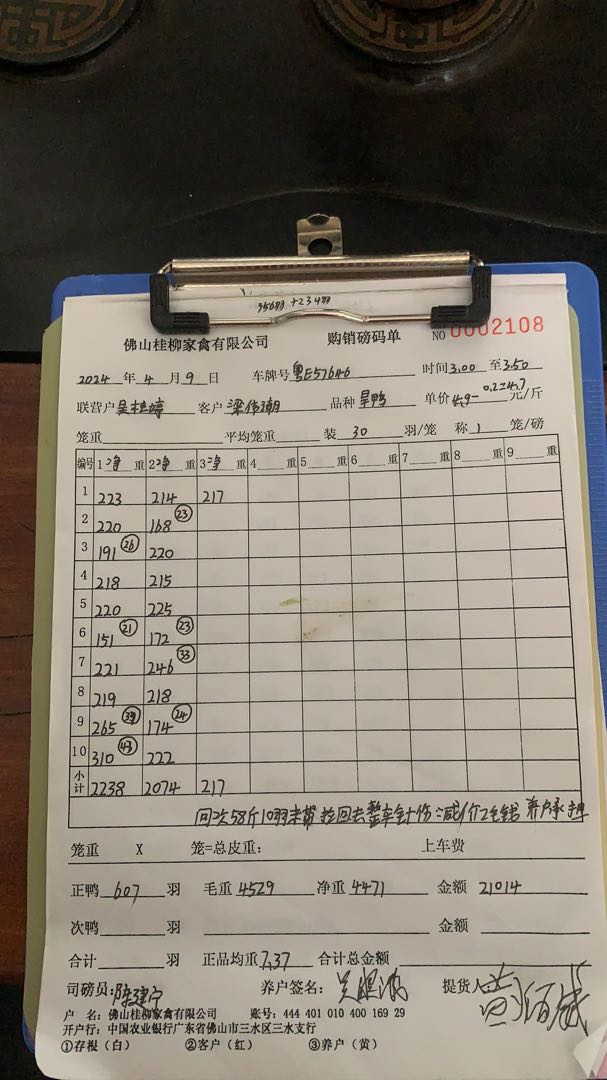 356羽+234羽
佛山桂柳家禽有限公司 购销磅码单 NO 0002108
2024 年 4 月 9 日 车牌号 粤E57646 时间 3.00 至 3.50
联营户 客户 梁伟潮 品种 旱鸭 单价 4.9-0.2=4.7 元/斤
笼重 平均笼重 装 30 羽/笼 称 1 笼/磅
编号 1 净 重 2 净 重 3 净 重 4 重 5 重 6 重 7 重 8 重 9 重
1 223 214 217
2 220 168 (23)
3 191 (26) 220
4 218 215
5 220 225
6 151 (21) 172 (23)
7 221 246 (33)
8 219 218
9 265 (39) 174 (24)
10 310 (43) 222
小计 2238 2074 217
回次58斤10羽 拉回去整车 减价2毛钱 养户承担
笼重 X 笼=总皮重: 上车费
正鸭 607 羽 毛重 4529 净重 4471 金额 21014
次鸭 羽 金额
合计 羽 正品均重 7.37 合计总金额
司磅员: 陈建宁 养户签名: 提货人
户 名: 佛山桂柳家禽有限公司 账号: 444 401 010 400 169 29
开户行: 中国农业银行广东省佛山市三水区三水支行
①存根（白） ②客户（红） ③养户（黄）